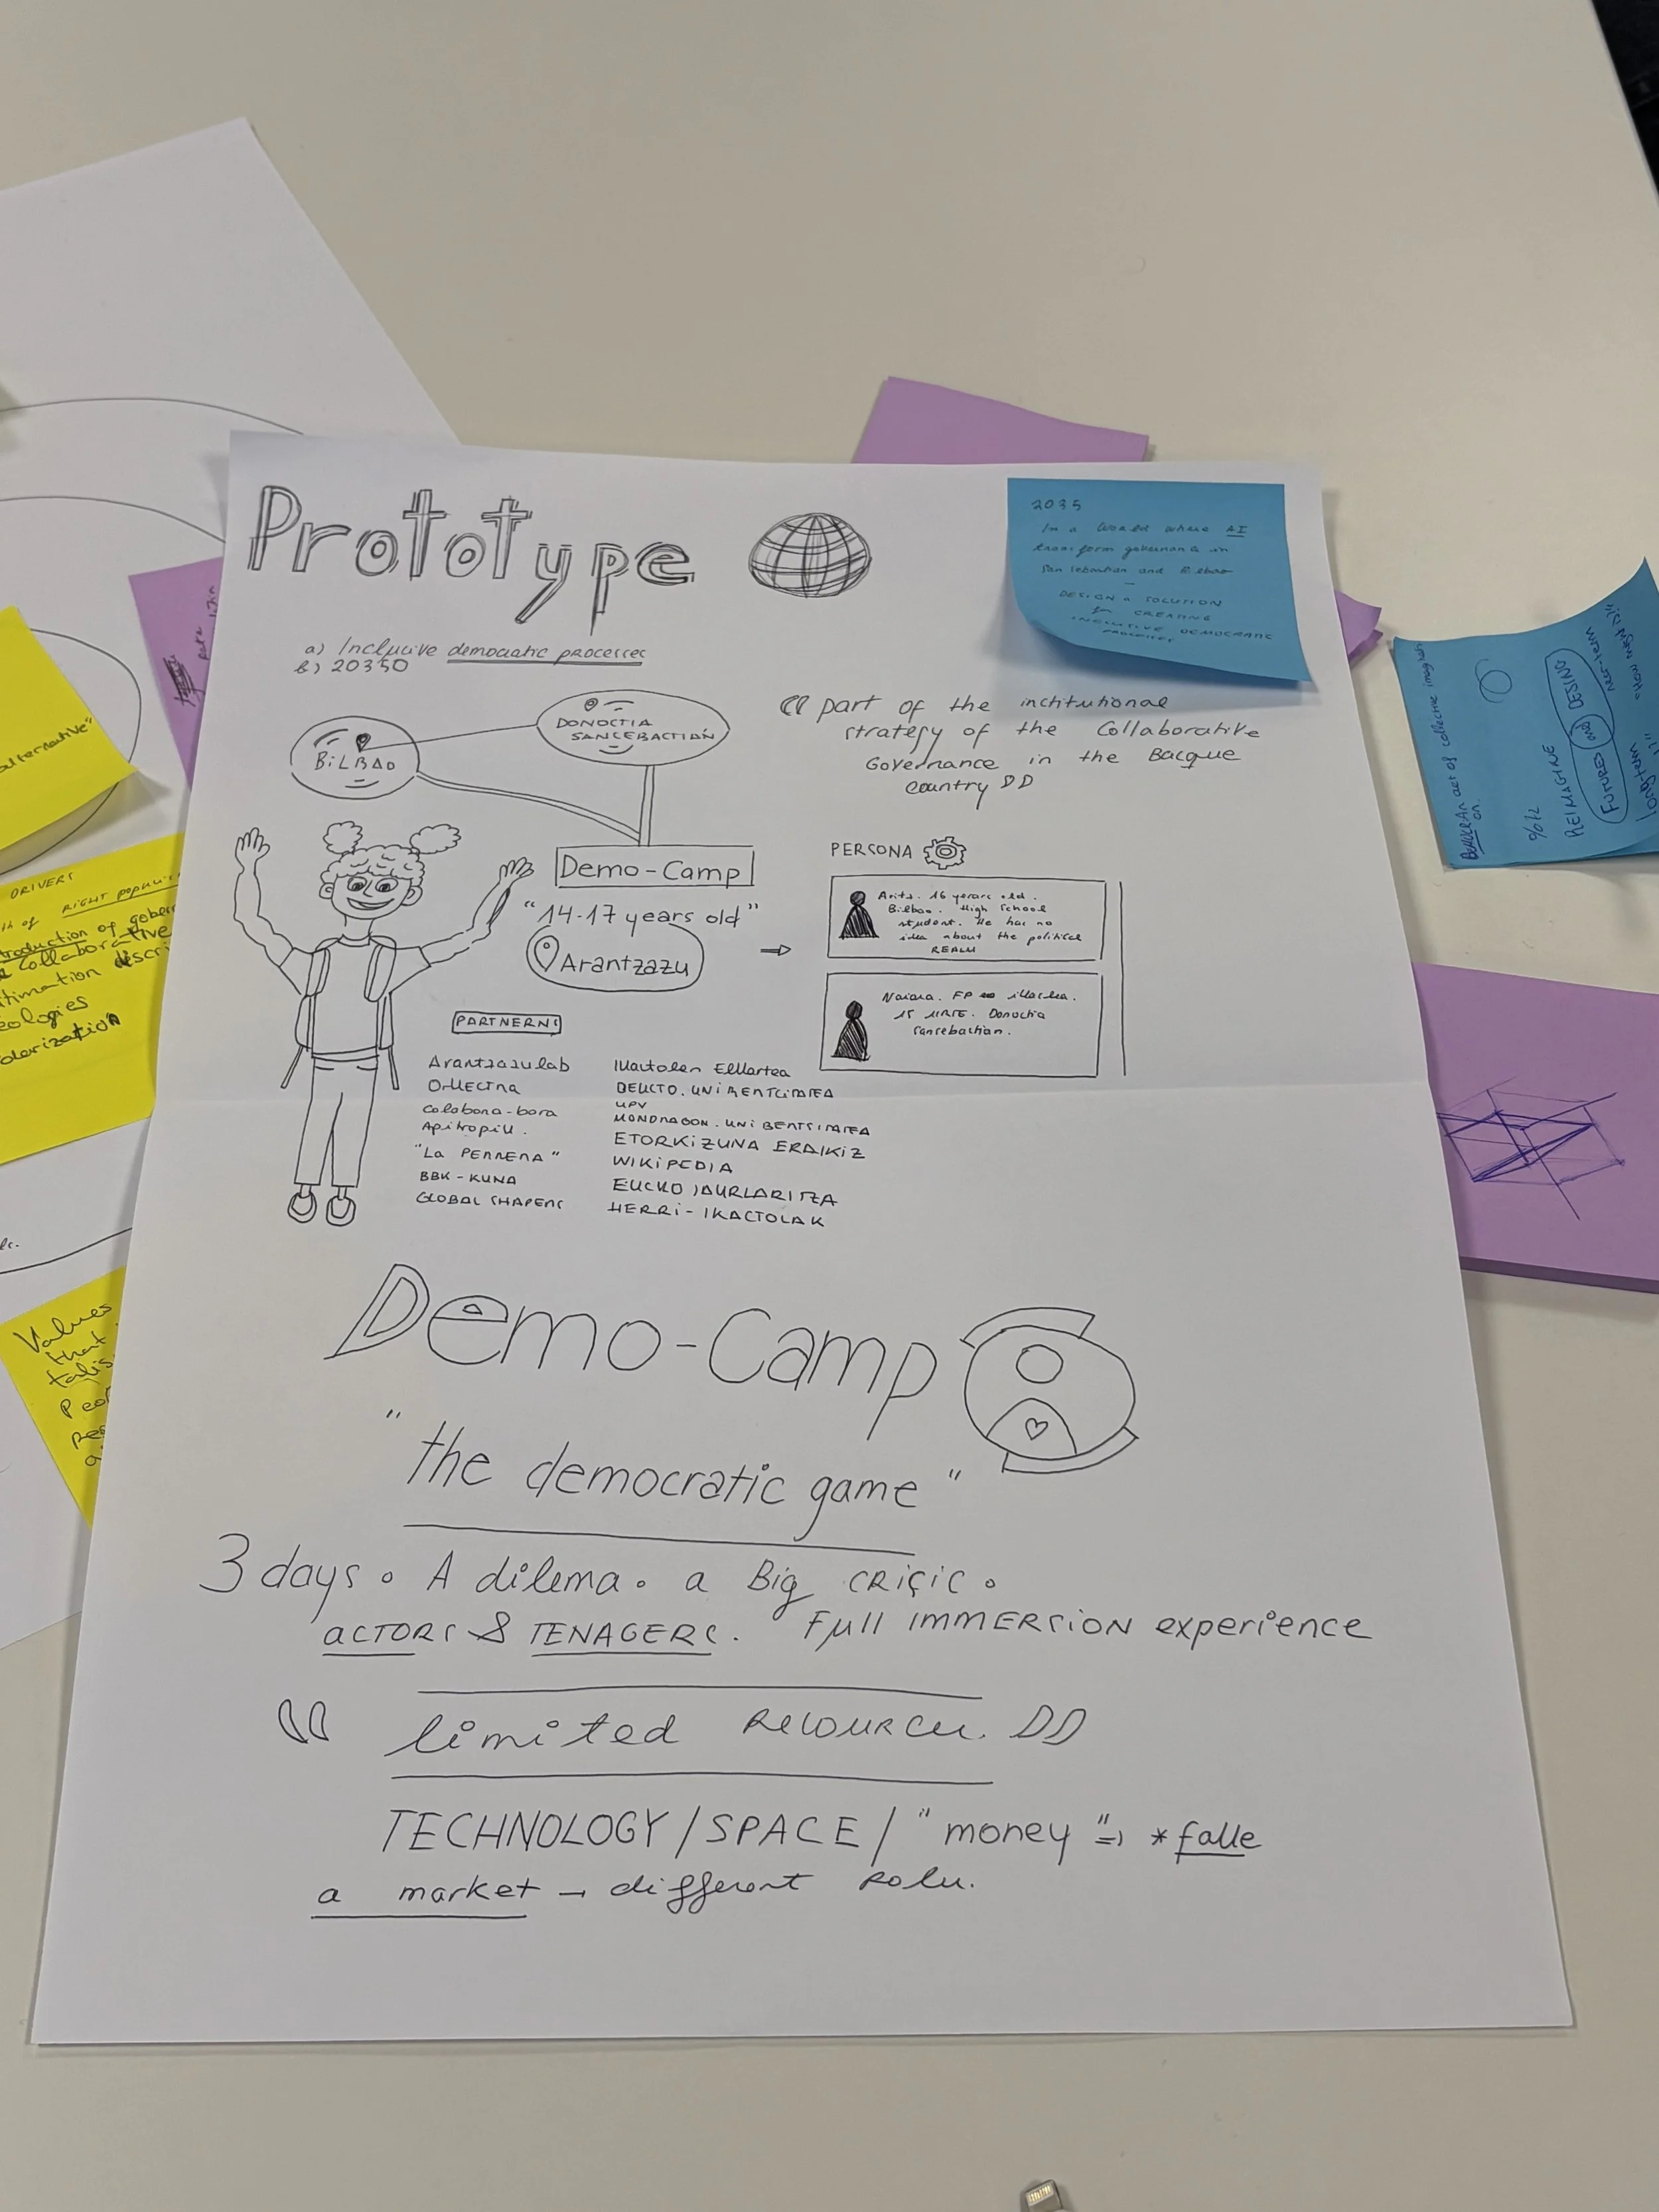 Prototype
2035
In a World where AI
transform gobernance in
San Sebastian and Bilbao
DESIGN a SOLUTION
for CREATING
INCLUSIVE DEMOCRATIC
PROCESSES
a) Inclusive democratic processes
b) 20350
DONOSTIA
SANSEBASTIAN
BiLBAO
part of the institutional
strategy of the Collaborative
Governance in the Basque
country
Demo-Camp
"14-17 years old"
Arantzazu
PERSONA
Aritz. 16 years old.
Bilbao. High School
student. He has no
idea about the political
REALM
Naiara. FP
15 URTE. Donostia
Sansebastian.
PARTNERS
Arantzazulab
Orkestra
Colabora-bora
Apitropik.
"La PERRERA"
BBK-KUNA
GLOBAL SHAPERS
Ikastolen Elkartea
DEUSTO. UNIBERTSITATEA
UPV
MONDRAGON. UNIBERTSITATEA
ETORKiZUNA ERAIKIZ
WIKIPEDIA
EUSKO JAURLARITZA
HERRI-IKASTOLAK
Demo-Camp
"the democratic game"
3 days. A dilema. a Big CRISIS.
aCTORS & TENAGERS. Full IMMERSION experience
limited Resources.
TECHNOLOGY/SPACE/"money" => *false
a market → different Roles.
alternative"
DRIVERS
th of RIGHT populi
troduction of gober
Collaborative
timation discri
eologies
olarization
Values
that
talis
Peo
REIMAGINE
FUTURES and DESING
act of collective imagi